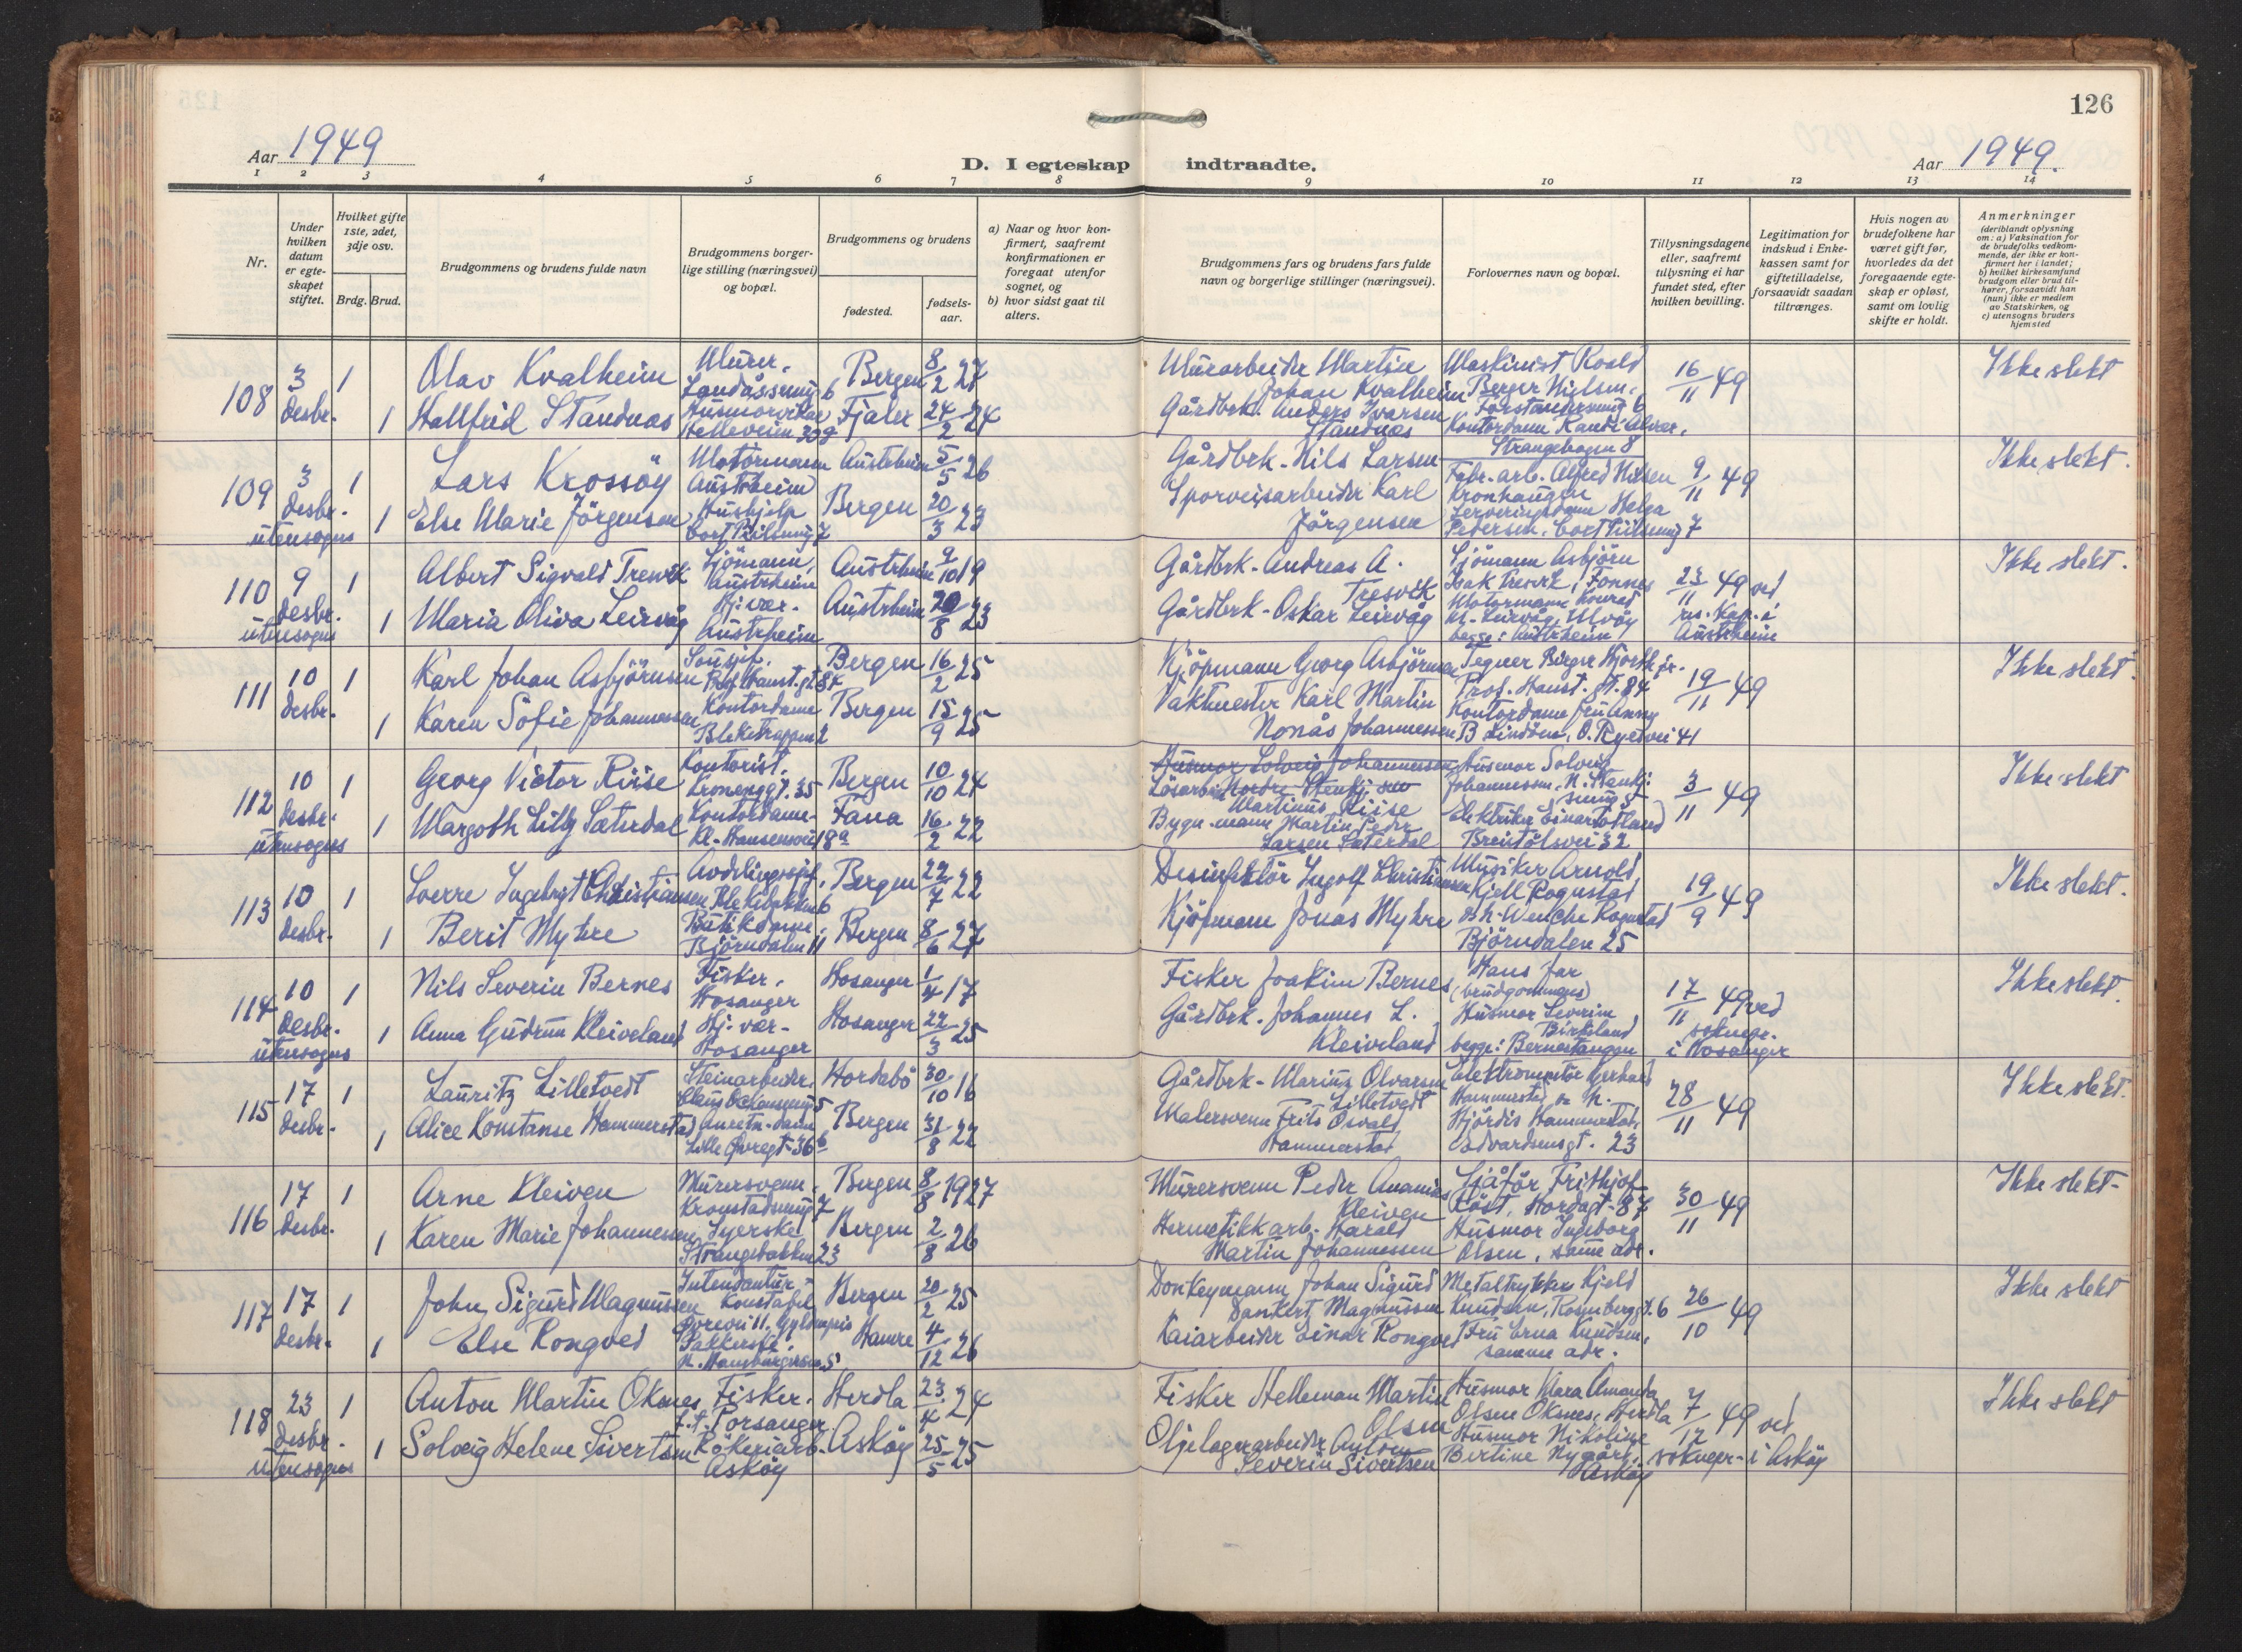 126
Aar 1949
D. I egteskap indtraadte.
Aar 1949.
1 2 3 4 5 6 7 8 9 10 11 12 13 14
Nr.
Under hvilken datum er egte-skapet stiftet.
Hvilket gifte 1ste, 2det, 3dje osv.
Brdg. Brud.
Brudgommens og brudens fulde navn
Brudgommens borger-lige stilling (næringsvei) og bopæl.
Brudgommens og brudens
fødested.
fødsels-aar.
a) Naar og hvor kon-firmert, saafremt konfirmationen er foregaat utenfor sognet, og
b) hvor sidst gaat til alters.
Brudgommens fars og brudens fars fulde navn og borgerlige stillinger (næringsvei).
Forlovernes navn og bopæl.
Tillysningsdagene eller, saafremt tillysning ei har fundet sted, efter hvilken bevilling.
Legitimation for indskud i Enke-kassen samt for giftetilladelse, forsaavidt saadan tiltrænges.
Hvis nogen av brudefolkene har været gift før, hvorledes da det foregaaende egte-skap er opløst, samt om lovlig skifte er holdt.
Anmerkninger (deriblandt oplysning om: a) Vaksination for de brudefolks vedkom-mende, der ikke er kon-firmert her i landet; b) hvilket kirkesamfund brudgom eller brud til-hører, forsaavidt han (hun) ikke er medlem av Statskirken, og c) utensogns bruders hjemsted
108 3 desbr. 1 Olav Kvalheim Murer. Landåssving 6 Bergen 8/2 27 Murarbeider Martin Johan Kvalheim Maskinist Roald Berger Nilsen, Forstandersmug 6 16/11 49 Ikke slekt
1 Hallfrid Standnes Husmorvikar Helleveien 30 Fjaler 24/2 24 Gårdbrk. Anders Ivarsen Standnes Kontordame Kandi Alvær, Strangehagen 8
109 3 desbr. utensogns 1 Lars Krossöy Motormann Austrheim Austrheim 5/5 26 Gårdbrk. Nils Larsen Fabr. arb. Alfred Nilsen Kronhaugen 9/11 49 Ikke slekt.
1 Else Marie Jörgensen Hushjelp Cort Piilsmug 7 Bergen 20/3 23 Sporveisarbeider Karl Jörgensen Serveringsdame Helga Pedersen, Cort Piilsmug 7
110 9 desbr. utensogns 1 Albert Sigvald Tresvik Sjömann, Austrheim Austrheim 9/10 19 Gårdbrk. Andreas A. Tresvik Sjömann Asbjörn Isak Tresvik, Fonnes 23/11 49 ved res. Kap. i Austrheim Ikke slekt.
1 Maria Oliva Leirvåg Hj. vær. Austrheim Austrheim 20/8 23 Gårdbrk. Oskar Leirvåg Motormann Konrad Kl. Leirvåg, Ulvöy begge: Austrheim
111 10 desbr. 1 Karl Johan Asbjörnsen Prof. Hanst. gt. 84 Bergen 16/2 25 Kjöpmann Georg Asbjörnsen Tegner Birger Hjorth jr. Prof. Hanst. gt. 84 19/11 49 Ikke slekt.
1 Karen Sofie Johannessen Kontordame Bleketrappen 2 Bergen 15/9 25 Vaktmester Karl Martin Nonås Johannessen Kontordame fru Anny B Lindöen, O. Ryesvei 41
112 10 desbr. utensogns 1 Georg Victor Riise Kontorist. Kroneng. gt. 35 Bergen 10/10 24 Husmor Solveig Johannessen Lösarbeider Martinus Riise Husmor Solveig Johannessen, N. Stenkj. smug 5 3/11 49 Ikke slekt
1 Margoth Lilly Sæterdal Kontordame Kl. Hansensvei 18a Fana 16/2 22 Bygn. mann Martin Peder Larsen Sæterdal Elektriker Einar Totland Breistölsvei 32
113 10 desbr. 1 Sverre Ingebrigt Christiansen Avdelingssjef, Blekebakken 6 Bergen 22/7 22 Desinfektör Ingolf Christiansen Musiker Arnold Kjell Rognstad 19/9 49 Ikke slekt.
1 Berit Myhre Butikdame, Björndalen 11 Bergen 8/6 27 Kjöpmann Jonas Myhre Wenche Rognstad Björndalen 25
114 10 desbr. utensogns 1 Nils Severin Bernes Fisker, Hosanger Hosanger 1/4 17 Fisker Joakim Bernes Hans far (brudgommens) 17/11 49 ved sokneprr. i Hosanger Ikke slekt.
1 Anna Gudrun Kleiveland Hj. vær. Hosanger Hosanger 22/3 25 Gårdbrk. Johannes L. Kleiveland Husmor Severine Birkeland begge: Bernestangen
115 17 desbr. 1 Lauritz Lilletvedt Steinarbeider. Claus Ockensmug 5 Hordabö 30/10 16 Gårdbrk. Marius Olvarsen Lilletvedt Elektromontör Gerhard Hammerstad og h. 28/11 49 Ikke slekt.
1 Alice Konstanse Hammerstad Lille Övregt. 36 b Bergen 31/8 22 Malersvenn Frits Osvald Hammerstad Hjördis Hammerstad, Edvardsensgt. 23
116 17 desbr. 1 Arne Kleiven Murersvenn. Kronstadsmug 7 Bergen 8/8 1927 Murersvenn Peder Ananias Kleiven Sjåför Frithjof Röst, Hordagt. 87 30/11 49 Ikke slekt.
1 Karen Marie Johannessen Syerske Strangebakken 23 Bergen 2/8 26 Hermetikkarb. Harald Martin Johannessen Husmor Ingeborg Olsen, samme adr.
117 17 desbr. 1 John Sigurd Magnussen Intendantur-Konstabel Bergen 20/2 25 Donkeymann Johan Sigurd Dankert Magnussen Metaltrykker Kjeld Knudsen, Rosenberggt. 6 26/10 49 Ikke slekt
1 Else Rongved Pakkerske, N. Hamburgersm. 5 Hamre 4/12 26 Kaiarbeider Einar Rongved Fru Erna Knudsen, samme adr.
118 23 desbr. utensogns 1 Anton Martin Oksnes Fisker. f. t. Porsanger Herdla 23/4 24 Fisker Helleman Martin Olsen Husmor Klara Amanda Olsen Oksnes, Herdla 7/12 49 ved sokneprr. i Asköy Ikke slekt
1 Solveig Helene Sivertsen Rökeriarb. Asköy Asköy 25/5 25 Oljelagerarbeider Anton Severin Sivertsen Husmor Nikoline Bertine Nygård, Asköy